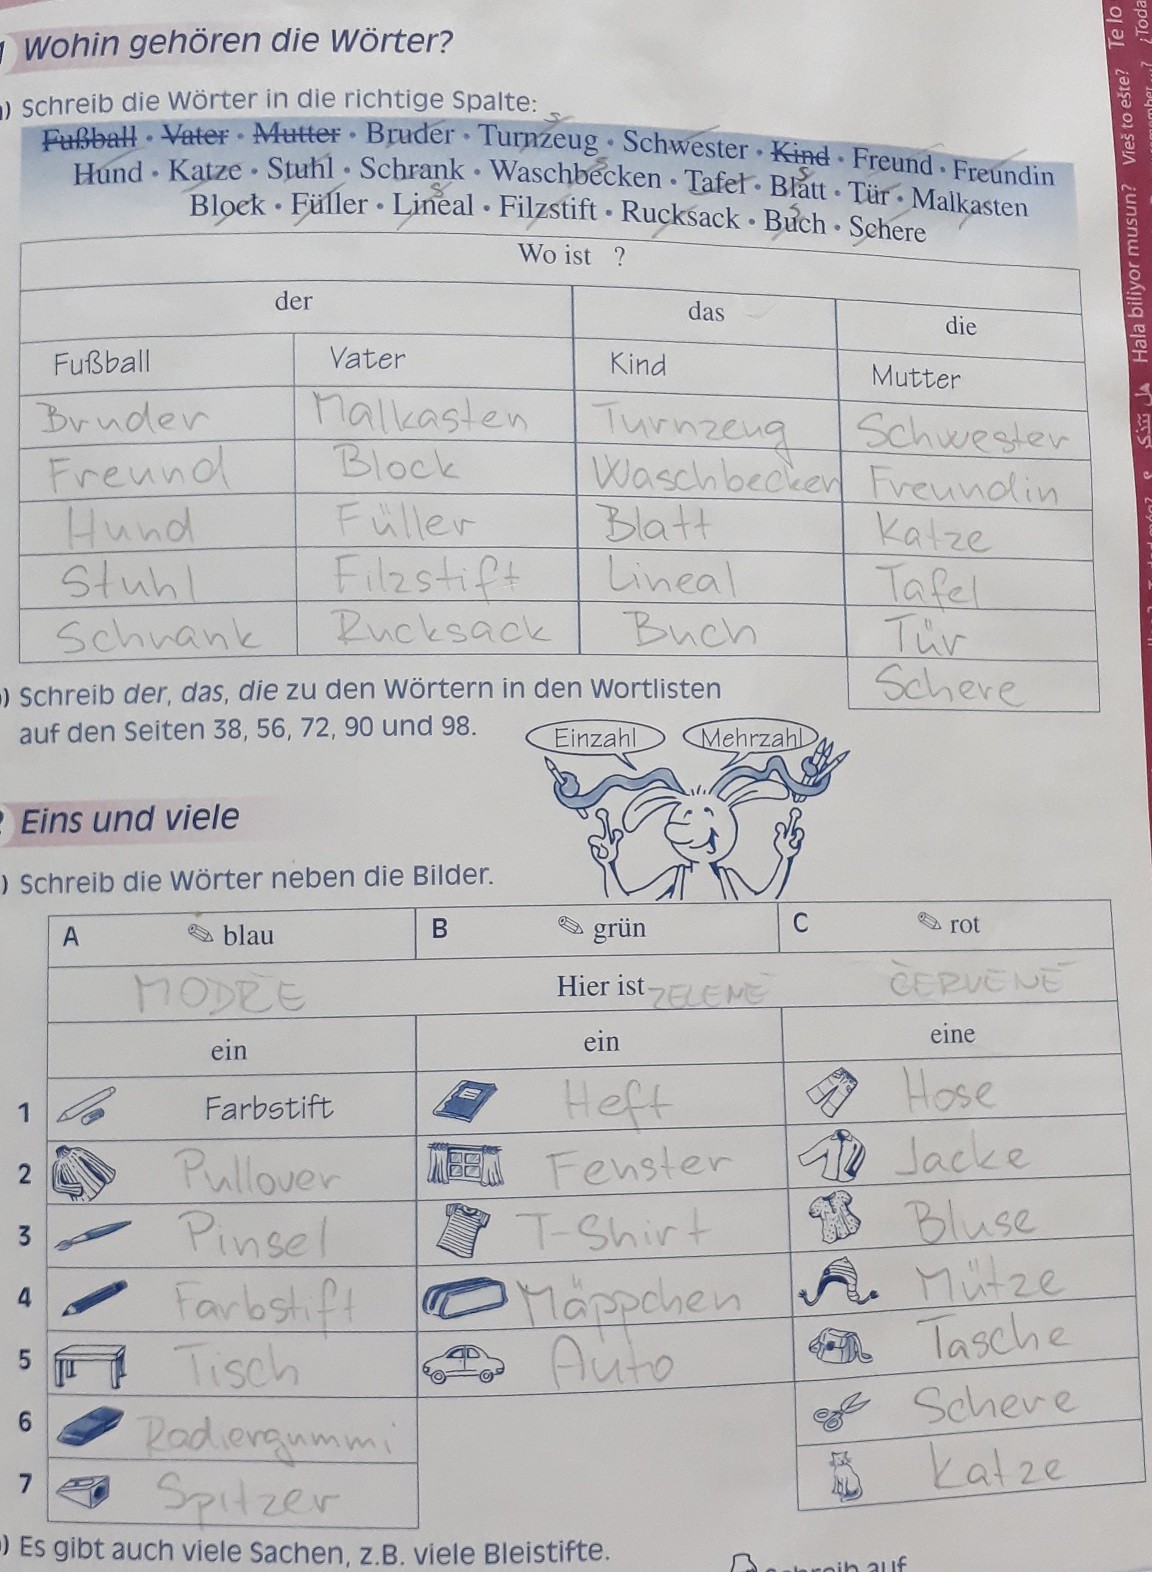 Wohin gehören die Wörter?
) Schreib die Wörter in die richtige Spalte:
Fußball • Vater • Mutter • Bruder • Turnzeug • Schwester • Kind • Freund • Freundin
Hund • Katze • Stuhl • Schrank • Waschbecken • Tafel • Blatt • Tür • Malkasten
Block • Füller • Lineal • Filzstift • Rucksack • Buch • Schere
Wo ist ?
der das die
Fußball Vater Kind Mutter
Bruder Malkasten Turnzeug Schwester
Freund Block Waschbecken Freundin
Hund Füller Blatt Katze
Stuhl Filzstift Lineal Tafel
Schrank Rucksack Buch Tür
Schere
) Schreib der, das, die zu den Wörtern in den Wortlisten
auf den Seiten 38, 56, 72, 90 und 98.
Einzahl Mehrzahl
Eins und viele
) Schreib die Wörter neben die Bilder.
A blau B grün C rot
MODŘE Hier ist ZELENĚ ČERVENĚ
ein ein eine
1 Farbstift Heft Hose
2 Pullover Fenster Jacke
3 Pinsel T-Shirt Bluse
4 Farbstift Mäppchen Mütze
5 Tisch Auto Tasche
6 Radiergummi Schere
7 Spitzer Katze
) Es gibt auch viele Sachen, z.B. viele Bleistifte.
auf
Te lo
¿Toda
Vieš to ešte?
Hala biliyor musun?